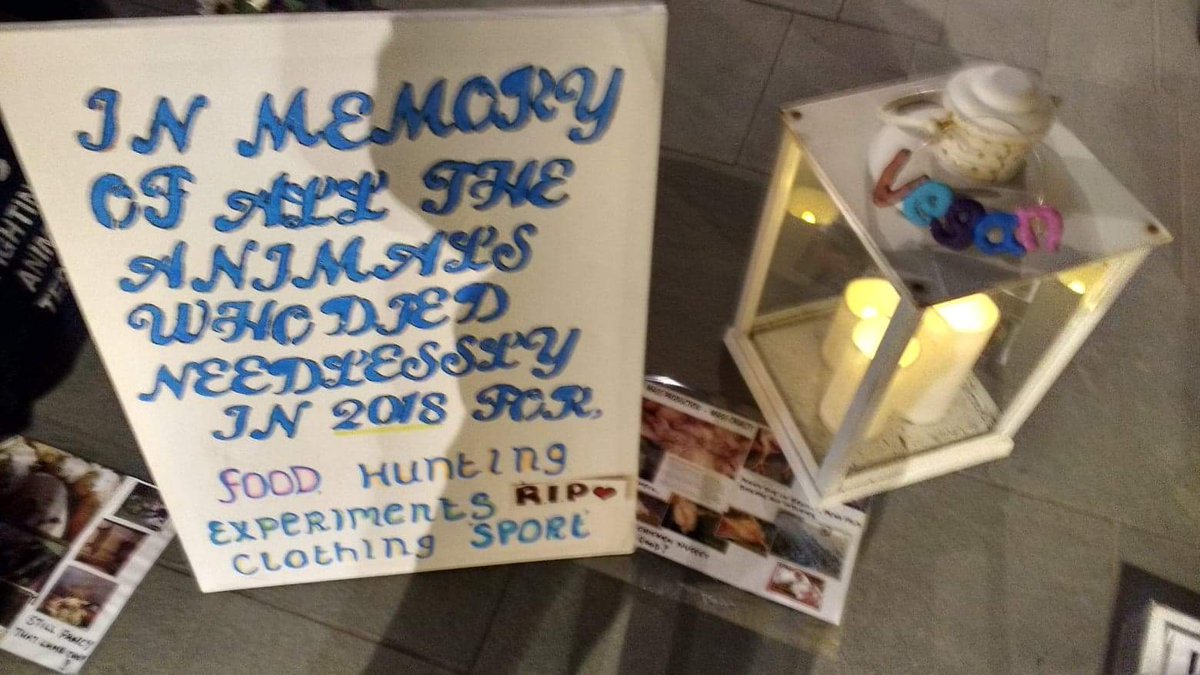 IN MEMORY
OF ALL THE
ANIMALS
WHO DIED
NEEDLESSLY
IN 2018 FOR.
FOOD HUNTING
EXPERIMENTS RIP
CLOTHING SPORT
Vegan
STILL FANCY
THAT
?
CHICKEN NUGGET